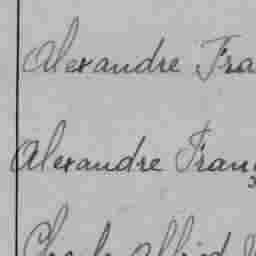 Alexandre Fra
Alexandre Franç
Charle Alfred